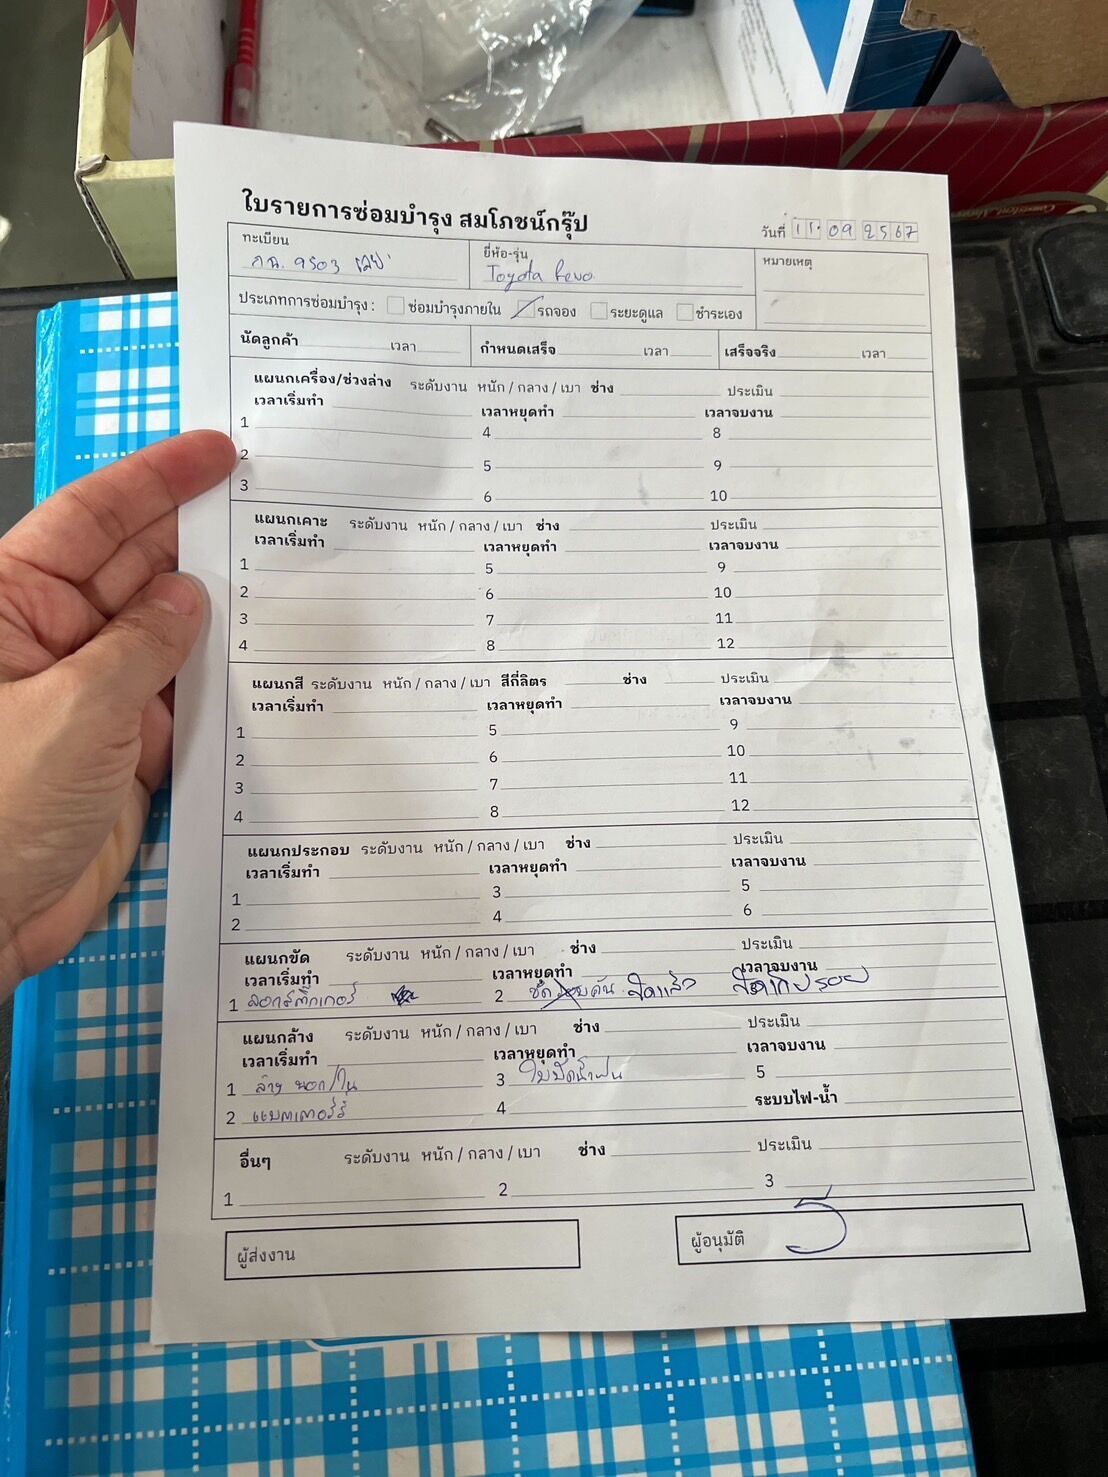 ใบรายการซ่อมบำรุง สมโภชน์กรุ๊ป
วันที่ 11 09 2567
ทะเบียน
กฉ. 9503 เลย
ยี่ห้อ-รุ่น
Toyota Revo
หมายเหตุ
ประเภทการซ่อมบำรุง : ซ่อมบำรุงภายใน รถจอง ระยะดูแล ชำระเอง
นัดลูกค้า เวลา กำหนดเสร็จ เวลา เสร็จจริง เวลา
แผนกเครื่อง/ช่วงล่าง ระดับงาน หนัก / กลาง / เบา ช่าง ประเมิน
เวลาเริ่มทำ เวลาหยุดทำ เวลาจบงาน
1 4 8
2 5 9
3 6 10
แผนกเคาะ ระดับงาน หนัก / กลาง / เบา ช่าง ประเมิน
เวลาเริ่มทำ เวลาหยุดทำ เวลาจบงาน
1 5 9
2 6 10
3 7 11
4 8 12
แผนกสี ระดับงาน หนัก / กลาง / เบา สีกี่ลิตร ช่าง ประเมิน
เวลาเริ่มทำ เวลาหยุดทำ เวลาจบงาน
1 5 9
2 6 10
3 7 11
4 8 12
แผนกประกอบ ระดับงาน หนัก / กลาง / เบา ช่าง ประเมิน
เวลาเริ่มทำ เวลาหยุดทำ เวลาจบงาน
1 3 5
2 4 6
แผนกขัด ระดับงาน หนัก / กลาง / เบา ช่าง ประเมิน
เวลาเริ่มทำ เวลาหยุดทำ เวลาจบงาน
1 ลอกสติ๊กเกอร์ 2 ขัดรอบคัน ขัดแล้ว
แผนกล้าง ระดับงาน หนัก / กลาง / เบา ช่าง ประเมิน
เวลาเริ่มทำ เวลาหยุดทำ เวลาจบงาน
1 ล้าง นอก/ใน 3 ใบปัดน้ำฝน 5
2 แบตเตอร์รี่ 4 ระบบไฟ-น้ำ
อื่นๆ ระดับงาน หนัก / กลาง / เบา ช่าง ประเมิน
1 2 3
ผู้ส่งงาน ผู้อนุมัติ